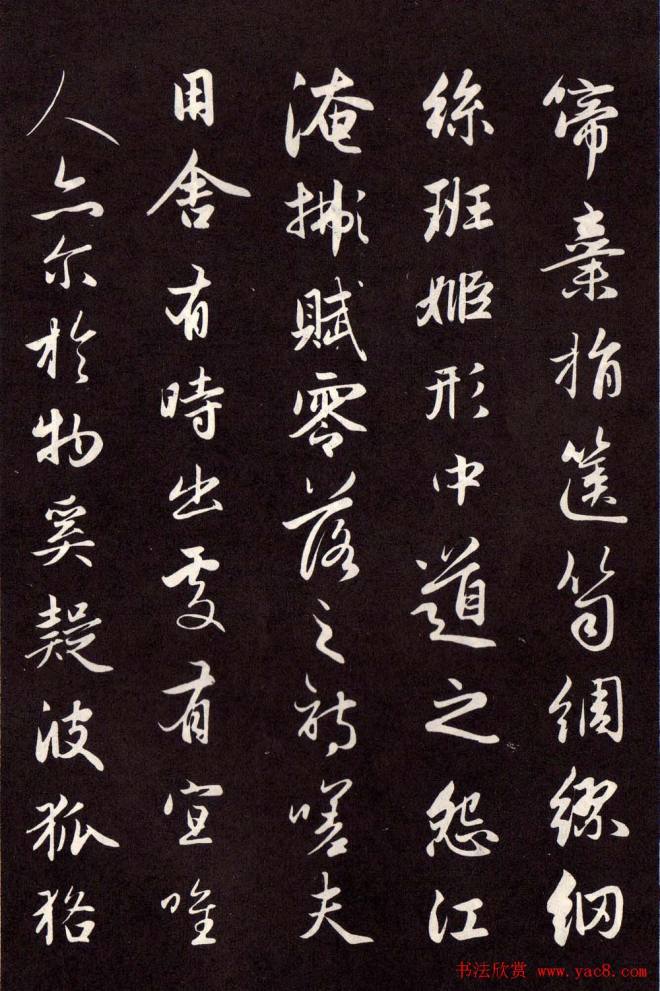 棄捐篋笥綢繆網
絲班姬形中道之怨江
淹賦零落之詩嗟夫
用舍有時出處有宜唯
人亦尔於物奚疑彼狐狢
书法欣赏 www.yac8.com